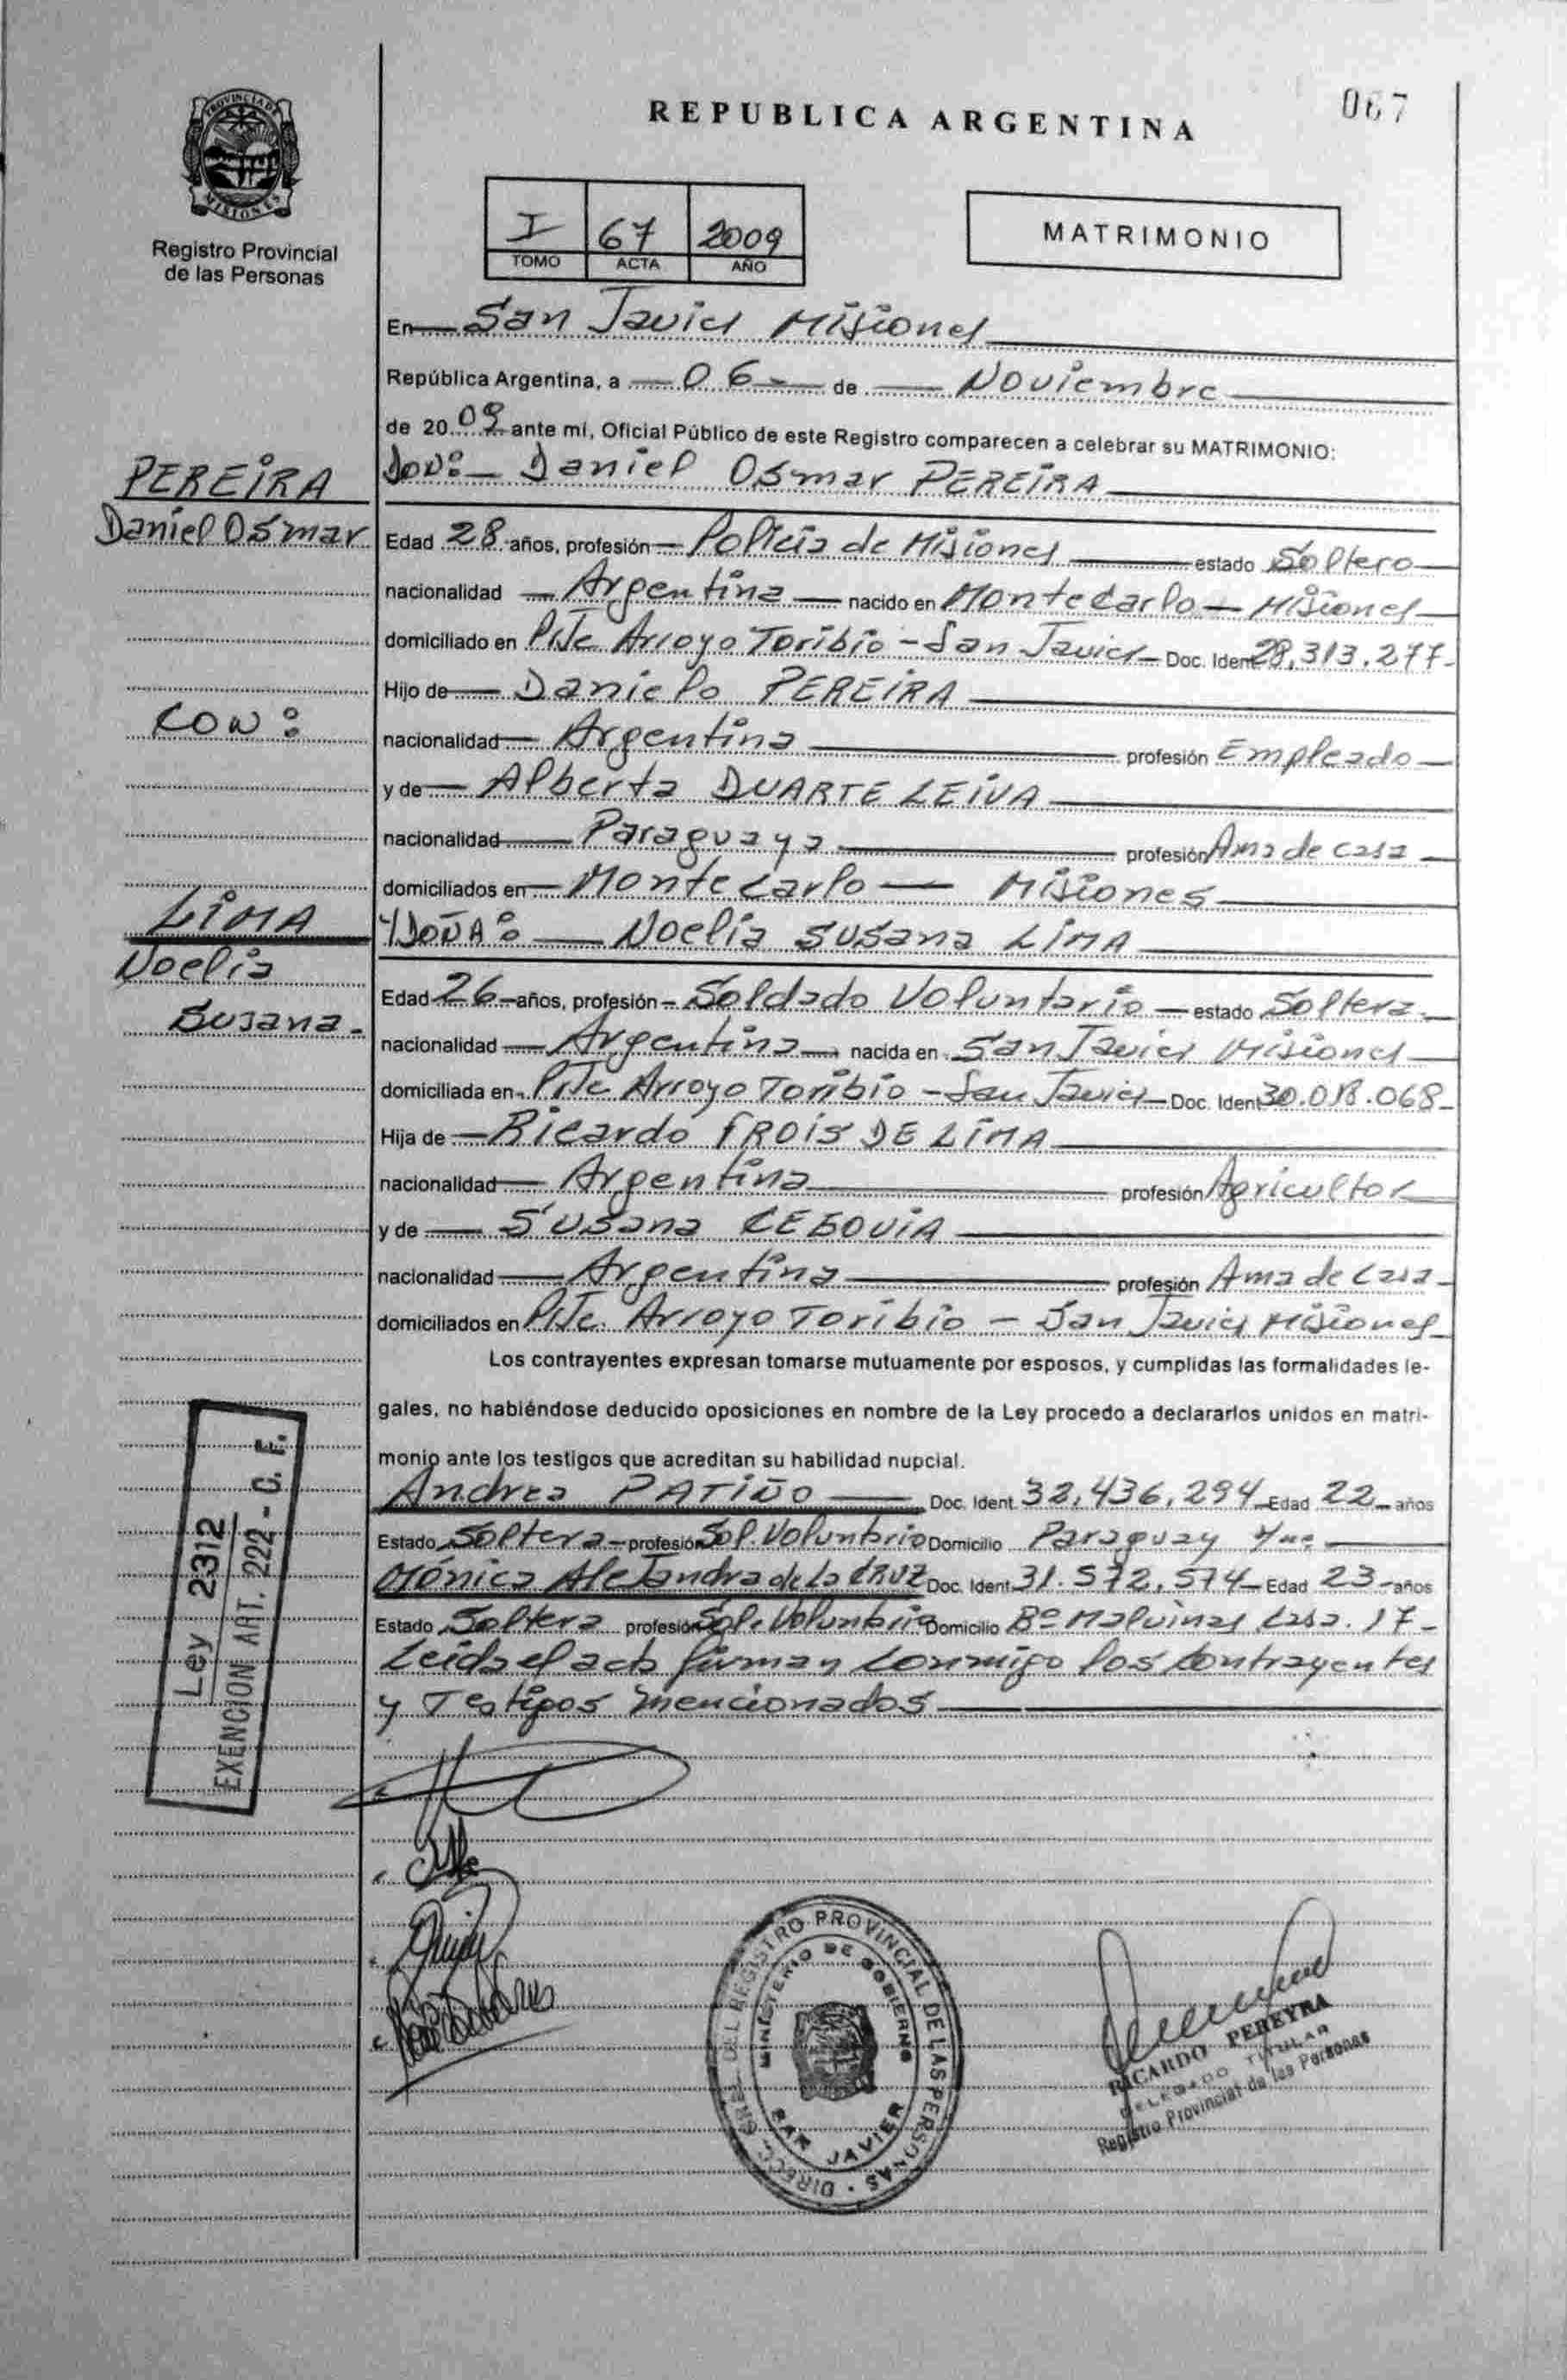 067
REPUBLICA ARGENTINA
PROVINCIA DE
MISIONES
Registro Provincial
de las Personas
I 67 2009
TOMO ACTA AÑO
MATRIMONIO
En San Javier Misiones
República Argentina, a 06 de Noviembre
de 2009 ante mi, Oficial Público de este Registro comparecen a celebrar su MATRIMONIO:
PEREIRA
DON: Daniel Osmar PEREIRA
Daniel Osmar
Edad 28 años, profesión Policía de Misiones estado Soltero
nacionalidad Argentina nacido en Montecarlo - Misiones
domiciliado en Pje Arroyo Toribio - San Javier Doc. Ident 28,313.277
Hijo de Danielo PEREIRA
CON:
nacionalidad Argentina profesión Empleado
y de Alberta DUARTE LEIVA
nacionalidad Paraguaya profesión Ama de casa
domiciliados en Montecarlo - Misiones
LIMA
Y DOÑA: Noelia Susana LIMA
Noelia
Edad 26 años, profesión Soldado Voluntario estado Soltera
Susana
nacionalidad Argentina nacida en San Javier Misiones
domiciliada en Pje Arroyo Toribio - San Javier Doc. Ident 30.018.068
Hija de Ricardo FROIS DE LIMA
nacionalidad Argentina profesión Agricultor
y de Susana CEBOVIA
nacionalidad Argentina profesión Ama de Casa
domiciliados en Pje. Arroyo Toribio - San Javier Misiones
Los contrayentes expresan tomarse mutuamente por esposos, y cumplidas las formalidades le-
gales, no habiéndose deducido oposiciones en nombre de la Ley procedo a declararlos unidos en matri-
monio ante los testigos que acreditan su habilidad nupcial.
Andrea PATIÑO Doc. Ident. 32,436,294 Edad 22 años
Estado Soltera profesión Sol. Voluntario Domicilio Paraguay
Mónica Alejandra de la CRUZ Doc. Ident. 31.572.574 Edad 23 años
Estado Soltera profesión Sol. Voluntario Domicilio Bº Malvinas Casa. 17
Leída el acta firman conmigo los contrayentes
y Testigos mencionados
Ley 2312
EXENCION ART. 222 - C. F.
DIRECC. GRAL. DEL REGISTRO PROVINCIAL DE LAS PERSONAS
MINISTERIO DE GOBIERNO
SAN JAVIER
RICARDO PEREYRA
DELEGADO TITULAR
Registro Provincial de las Personas